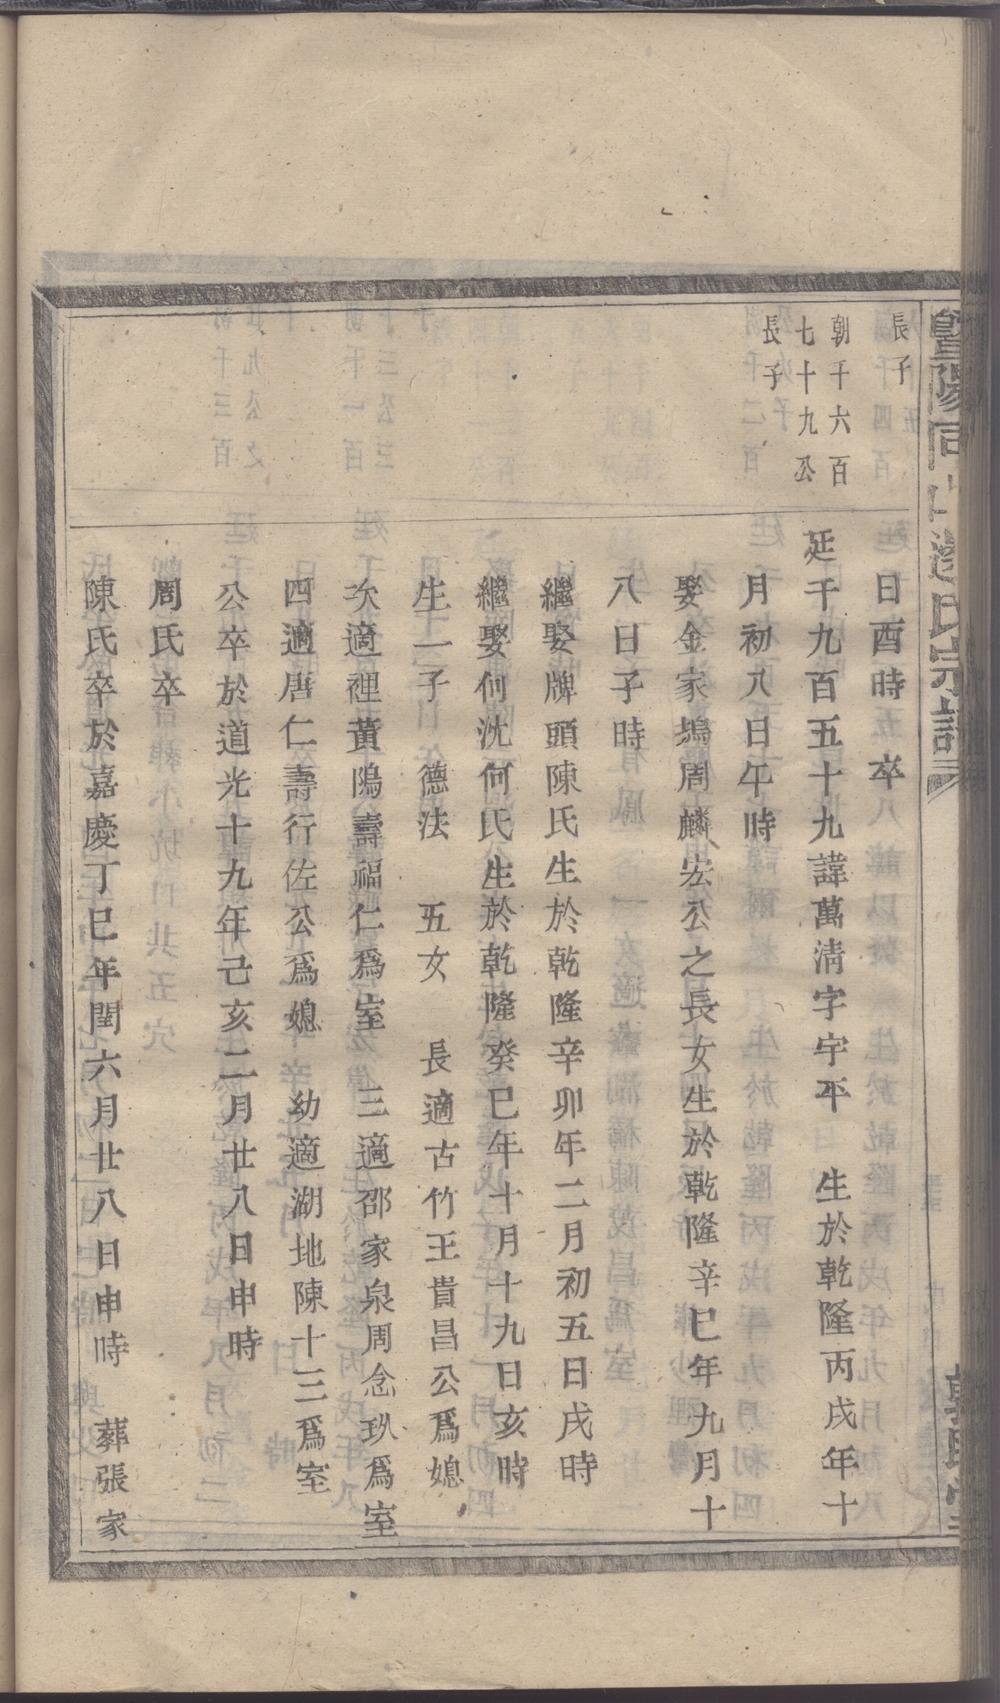 暨陽同山邊氏宗譜
長子
朝千六百
七十九公
長子
日酉時　卒
廷千九百五十九諱萬清字宇平　生於乾隆丙戌年十
月初八日午時
娶金家塢周麟宏公之長女生於乾隆辛巳年九月十
八日子時
繼娶牌頭陳氏生於乾隆辛卯年二月初五日戌時
繼娶何沈何氏生於乾隆癸巳年十月十九日亥時
生一子　德法　五女　長適古竹王貴昌公爲媳
次適裡黃隝壽福仁爲室　三適邵家泉周念玖爲室
四適唐仁壽行佐公爲媳　幼適湖地陳十三爲室
公卒於道光十九年己亥二月廿八日申時
周氏卒
陳氏卒於嘉慶丁巳年閏六月廿八日申時　葬張家